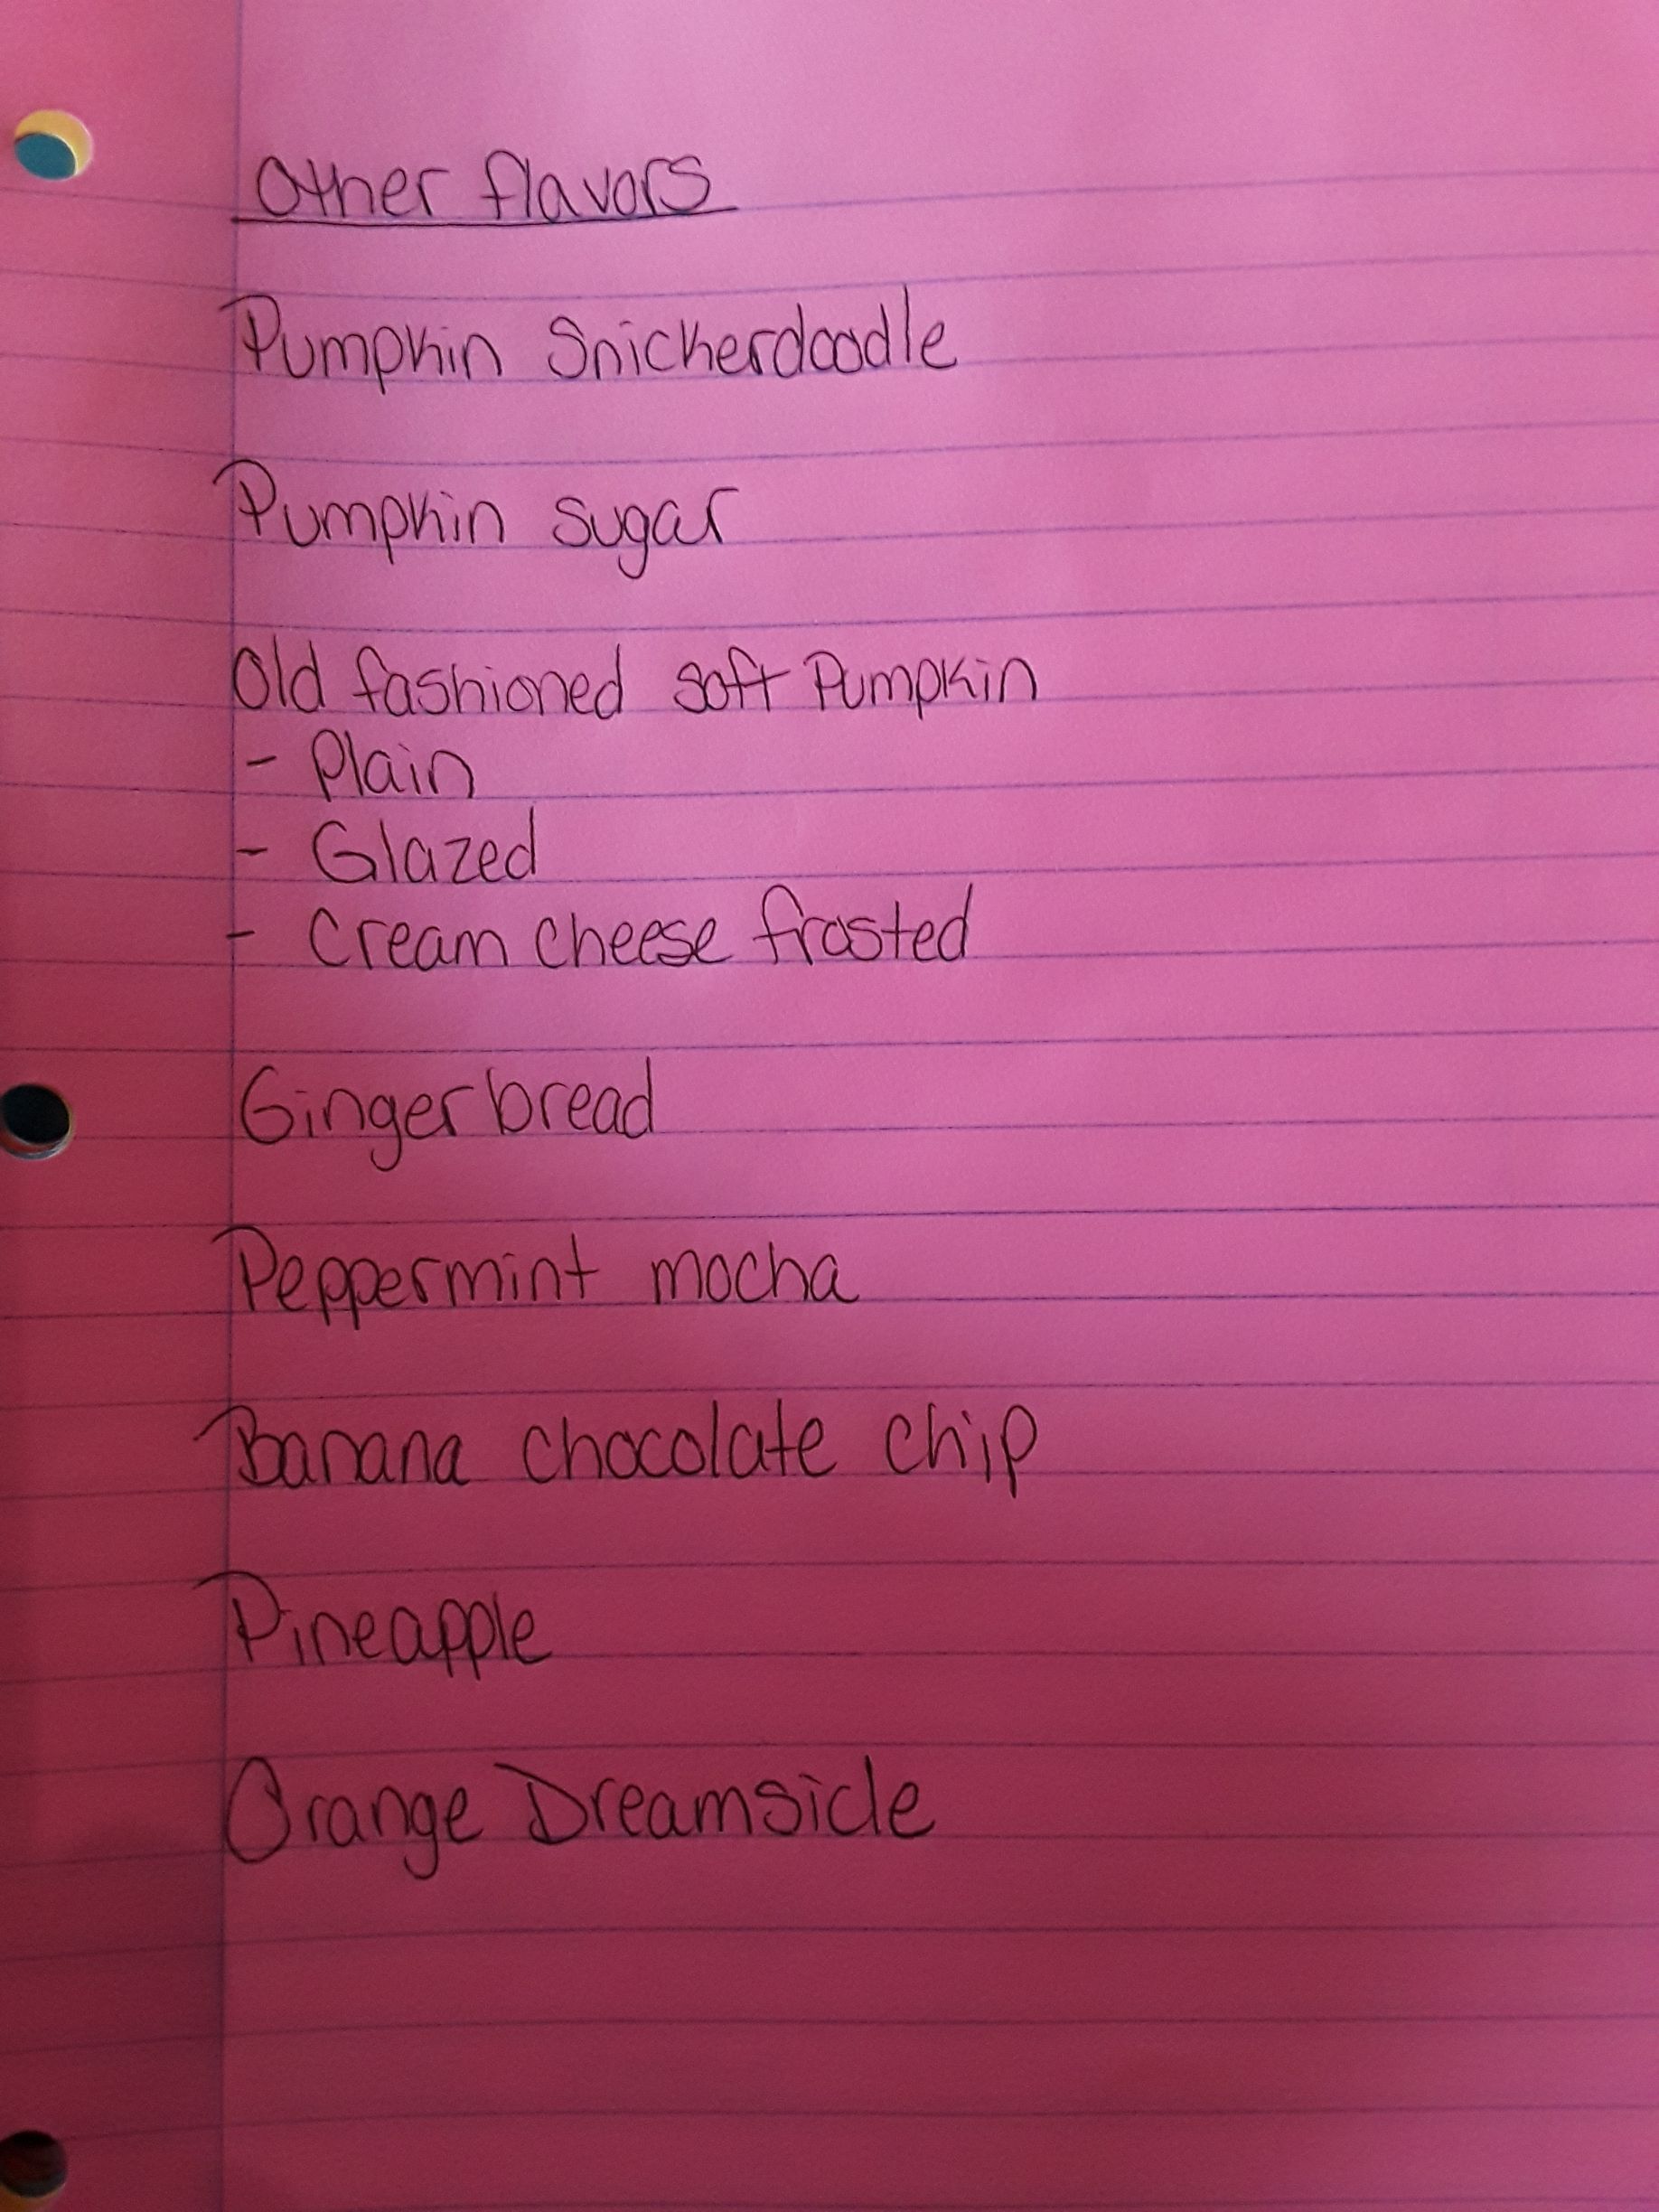 Other flavors
Pumpkin Snickerdoodle
Pumpkin sugar
Old fashioned soft Pumpkin
- Plain
- Glazed
- Cream cheese frosted
Gingerbread
Peppermint mocha
Banana chocolate chip
Pineapple
Orange Dreamsicle